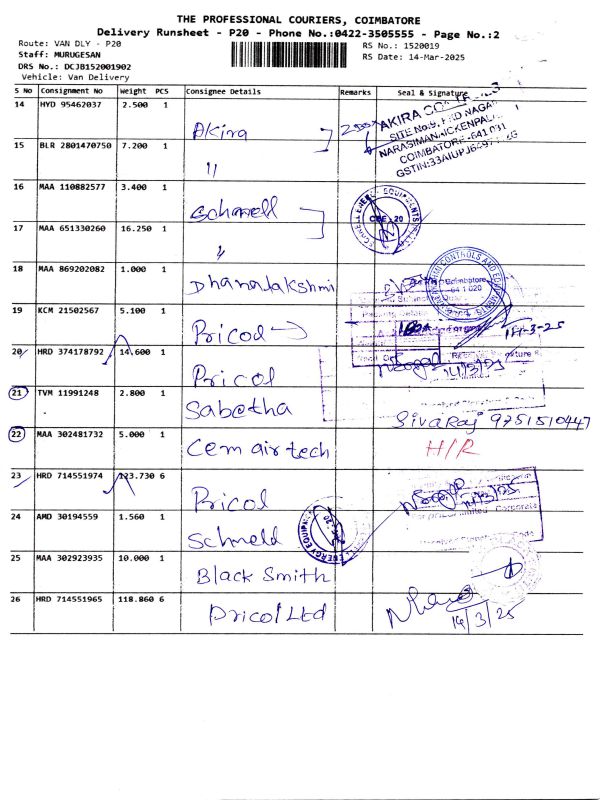 THE PROFESSIONAL COURIERS, COIMBATORE
Delivery Runsheet - P20 - Phone No.:0422-3505555 - Page No.:2
Route: VAN DLY - P20
RS No.: 1520019
Staff: MURUGESAN
RS Date: 14-Mar-2025
DRS No.: DCJB152001902
Vehicle: Van Delivery
S No Consignment No Weight PCS Consignee Details Remarks Seal & Signature
14 HYD 95462037 2.500 1 Akira
AKIRA
SITE No.9,
COIMBATORE-641 031
15 BLR 2801470750 7.200 1 "
16 MAA 110882577 3.400 1 Schmell
CBE 20
17 MAA 651330260 16.250 1 "
18 MAA 869202082 1.000 1 Dhanalakshmi
CONTROLS AND
Coimbatore
641 020
19 KCM 21502567 5.100 1 Pricol
14-3-25
20 HRD 374178792 14.600 1 Pricol
14/3/25
21 TVM 11991248 2.800 1 Sabetha
Sivaraj 9751510447
22 MAA 302481732 5.000 1 Cem air tech
H/R
23 HRD 714551974 123.730 6 Pricol
Corporate
24 AMD 30194559 1.560 1 Schmeld
ENERGY
25 MAA 302923935 10.000 1 Black Smith
26 HRD 714551965 118.860 6 Pricol Ltd
14/3/25